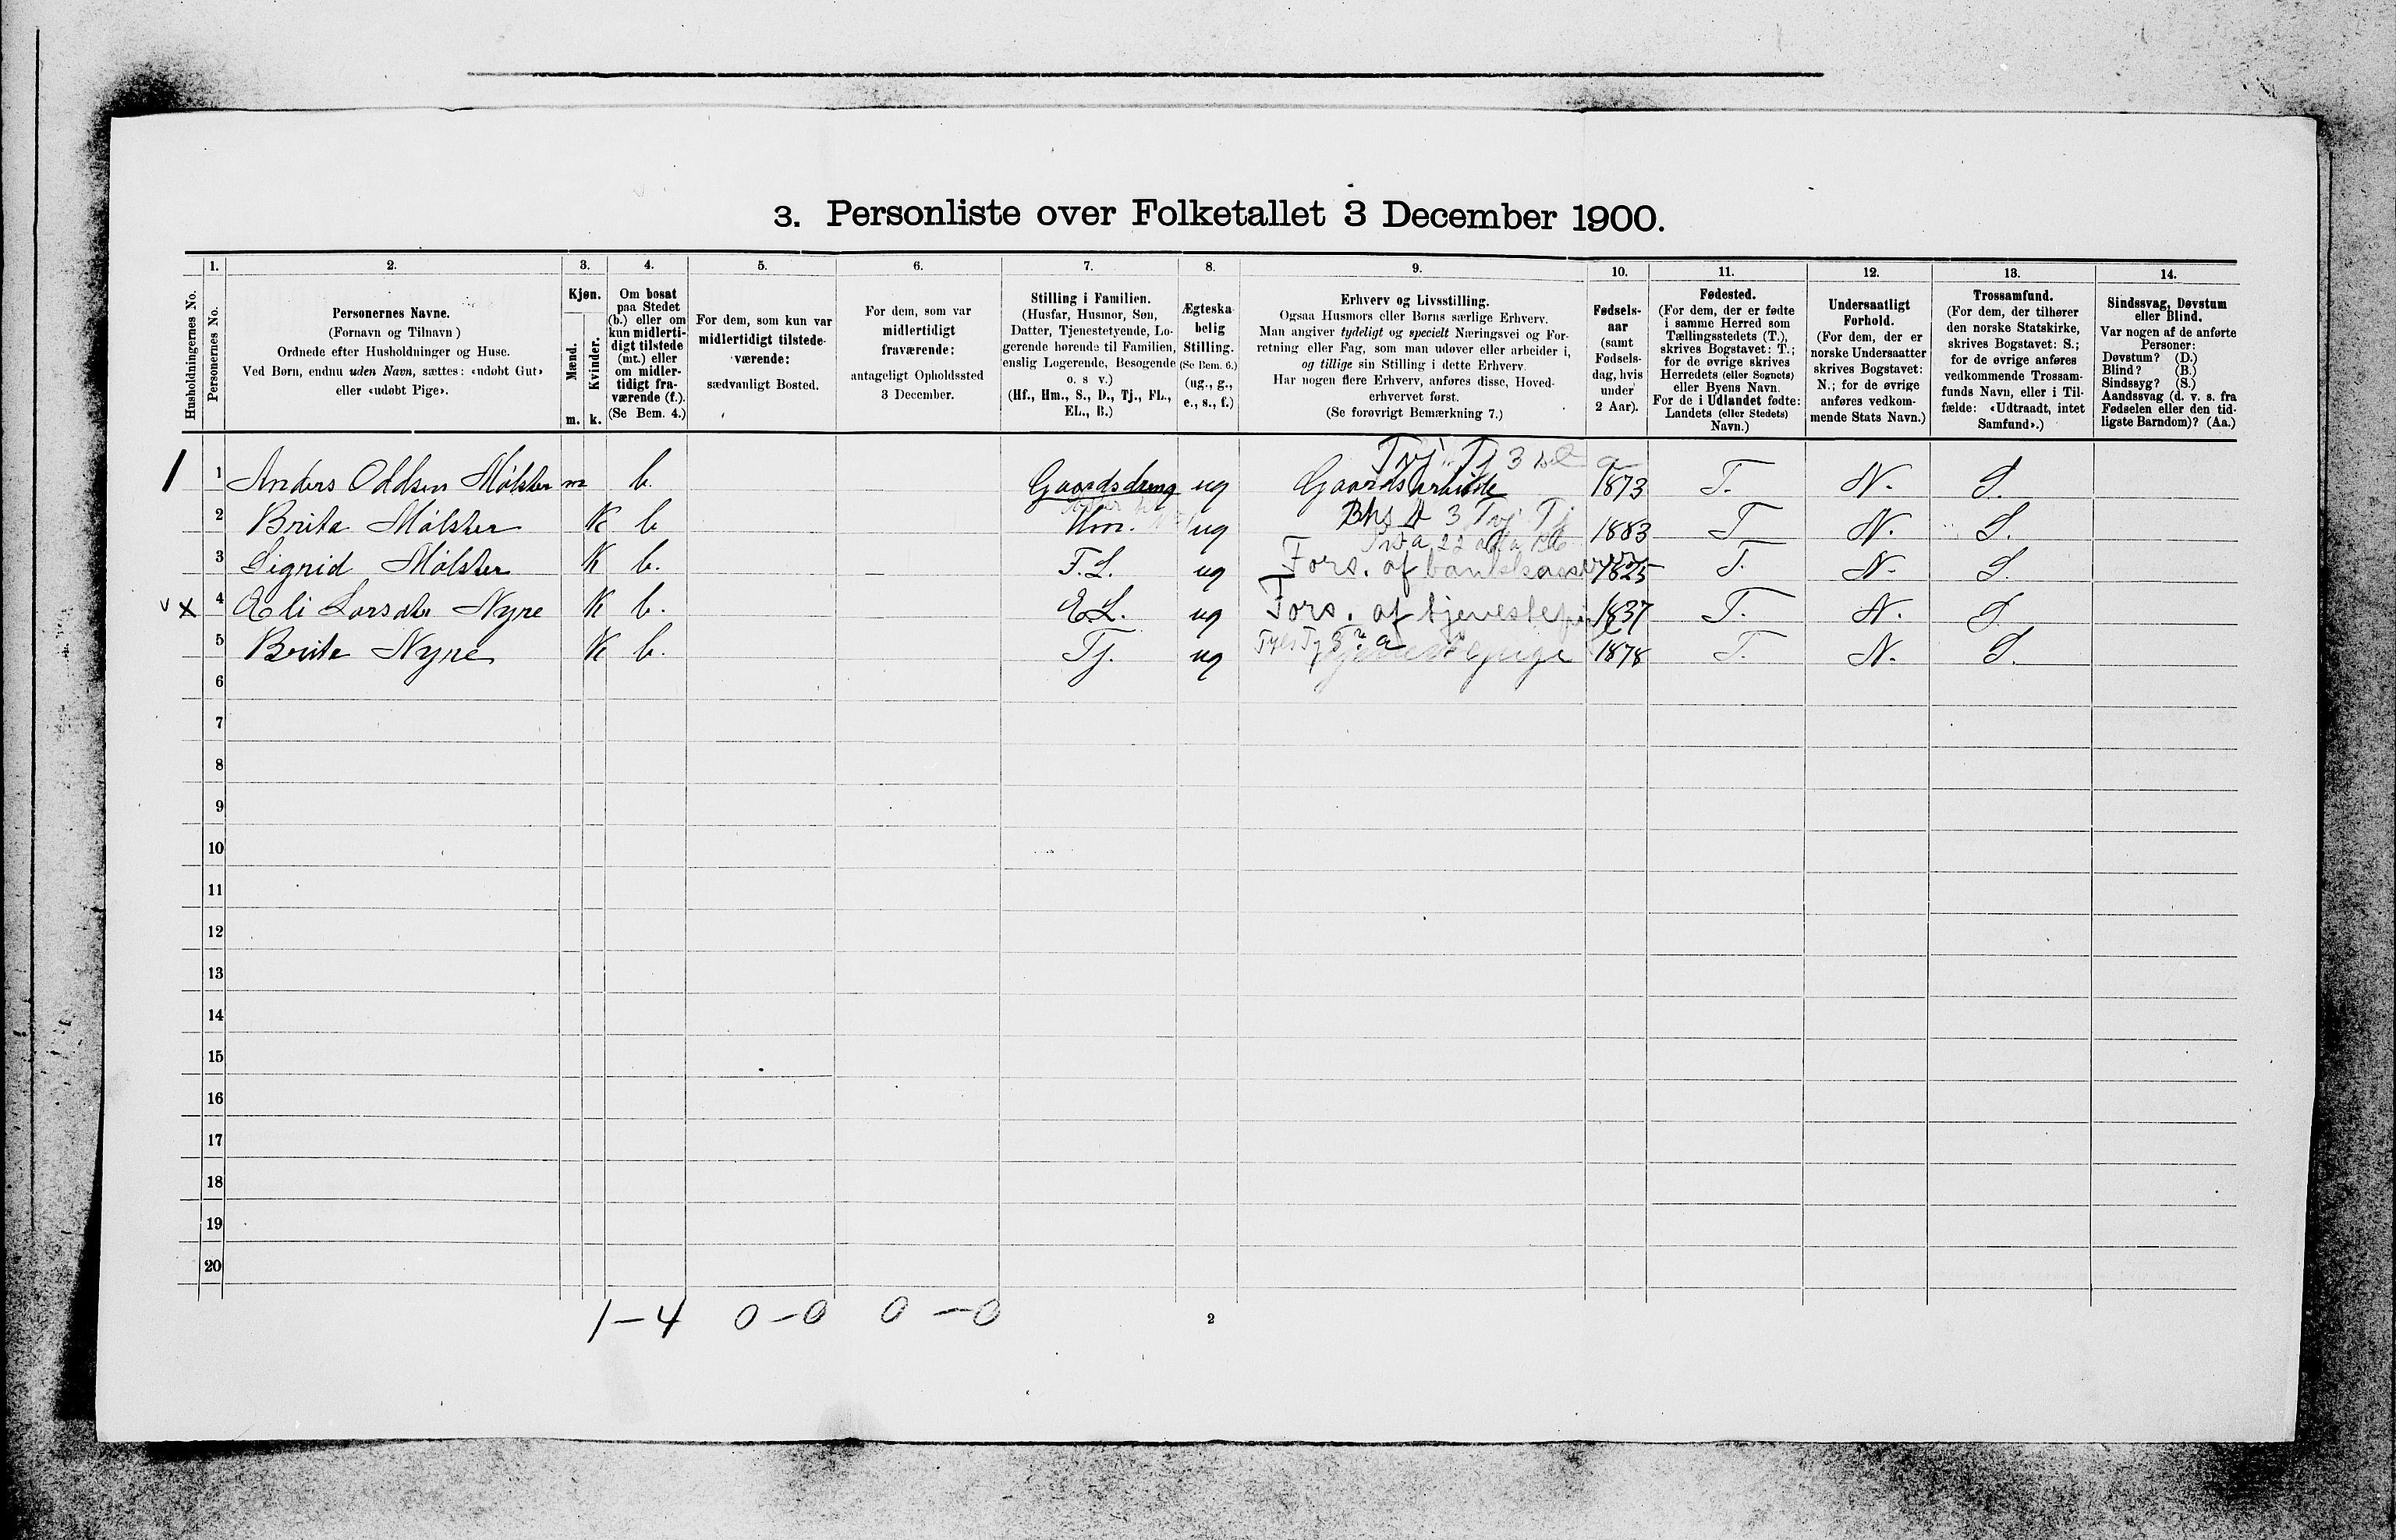 3. Personliste over Folketallet 3 December 1900.
1. 2. 3. 4. 5. 6. 7. 8. 9. 10. 11. 12. 13. 14.
Husholdningernes No.
Personernes No.
Personernes Navne.
(Fornavn og Tilnavn)
Ordnede efter Husholdninger og Huse.
Ved Børn, endnu uden Navn, sættes: «udøbt Gut»
eller «udøbt Pige».
Kjøn.
Mænd.
Kvinder.
m. k.
Om bosat
paa Stedet
(b.) eller om
kun midlerti-
digt tilstede
(mt.) eller
om midler-
tidigt fra-
værende (f.).
(Se Bem. 4.)
For dem, som kun var
midlertidigt tilstede-
værende:
sædvanligt Bosted.
For dem, som var
midlertidigt
fraværende:
antageligt Opholdssted
3 December.
Stilling i Familien.
(Husfar, Husmor, Søn,
Datter, Tjenestetyende, Lo-
gerende hørende til Familien,
enslig Logerende, Besøgende
o. s v.)
(Hf., Hm., S., D., Tj., FL.,
EL., B.)
Ægteska-
belig
Stilling.
(Se Bem. 6.)
(ug., g.,
e., s., f.)
Erhverv og Livsstilling.
Ogsaa Husmors eller Børns særlige Erhverv.
Man angiver tydeligt og specielt Næringsvei og For-
retning eller Fag, som man udøver eller arbeider i,
og tillige sin Stilling i dette Erhverv.
Har nogen flere Erhverv, anføres disse, Hoved-
erhvervet først.
(Se forøvrigt Bemærkning 7.)
Fødsels-
aar
(samt
Fødsels-
dag, hvis
under
2 Aar).
Fødested.
(For dem, der er fødte
i samme Herred som
Tællingsstedets (T.),
skrives Bogstavet: T.;
for de øvrige skrives
Herredets (eller Sognets)
eller Byens Navn.
For de i Udlandet fødte:
Landets (eller Stedets)
Navn.)
Undersaatligt
Forhold.
(For dem, der er
norske Undersaatter
skrives Bogstavet:
N.; for de øvrige
anføres vedkom-
mende Stats Navn.)
Trossamfund.
(For dem, der tilhører
den norske Statskirke,
skrives Bogstavet: S.;
for de øvrige anføres
vedkommende Trossam-
funds Navn, eller i Til-
fælde: «Udtraadt, intet
Samfund».)
Sindssvag, Døvstum
eller Blind.
Var nogen af de anførte
Personer:
Døvstum? (D.)
Blind? (B.)
Sindssyg? (S.)
Aandssvag (d. v. s. fra
Fødselen eller den tid-
ligste Barndom)? (Aa.)
1 1 Anders Oddsen Mølster m b. Gaardsdreng ug Gaardsarbeide 1873 T. N. S.
2 Brita Mølster K b Hm. ug 1883 T N. S.
3 Sigrid Mølster K b. F.L. ug Fors. af bankkasserer 1825 T. N. S.
x 4 Eli Larsdtr Nyre K b. EL. ug Fors. af tjenestepige 1837 T. N. S.
5 Brita Nyre K b. Tj. ug Tjenestepige 1878 T. N. S.
6
7
8
9
10
11
12
13
14
15
16
17
18
19
20
1–4 0–0 0–0
2